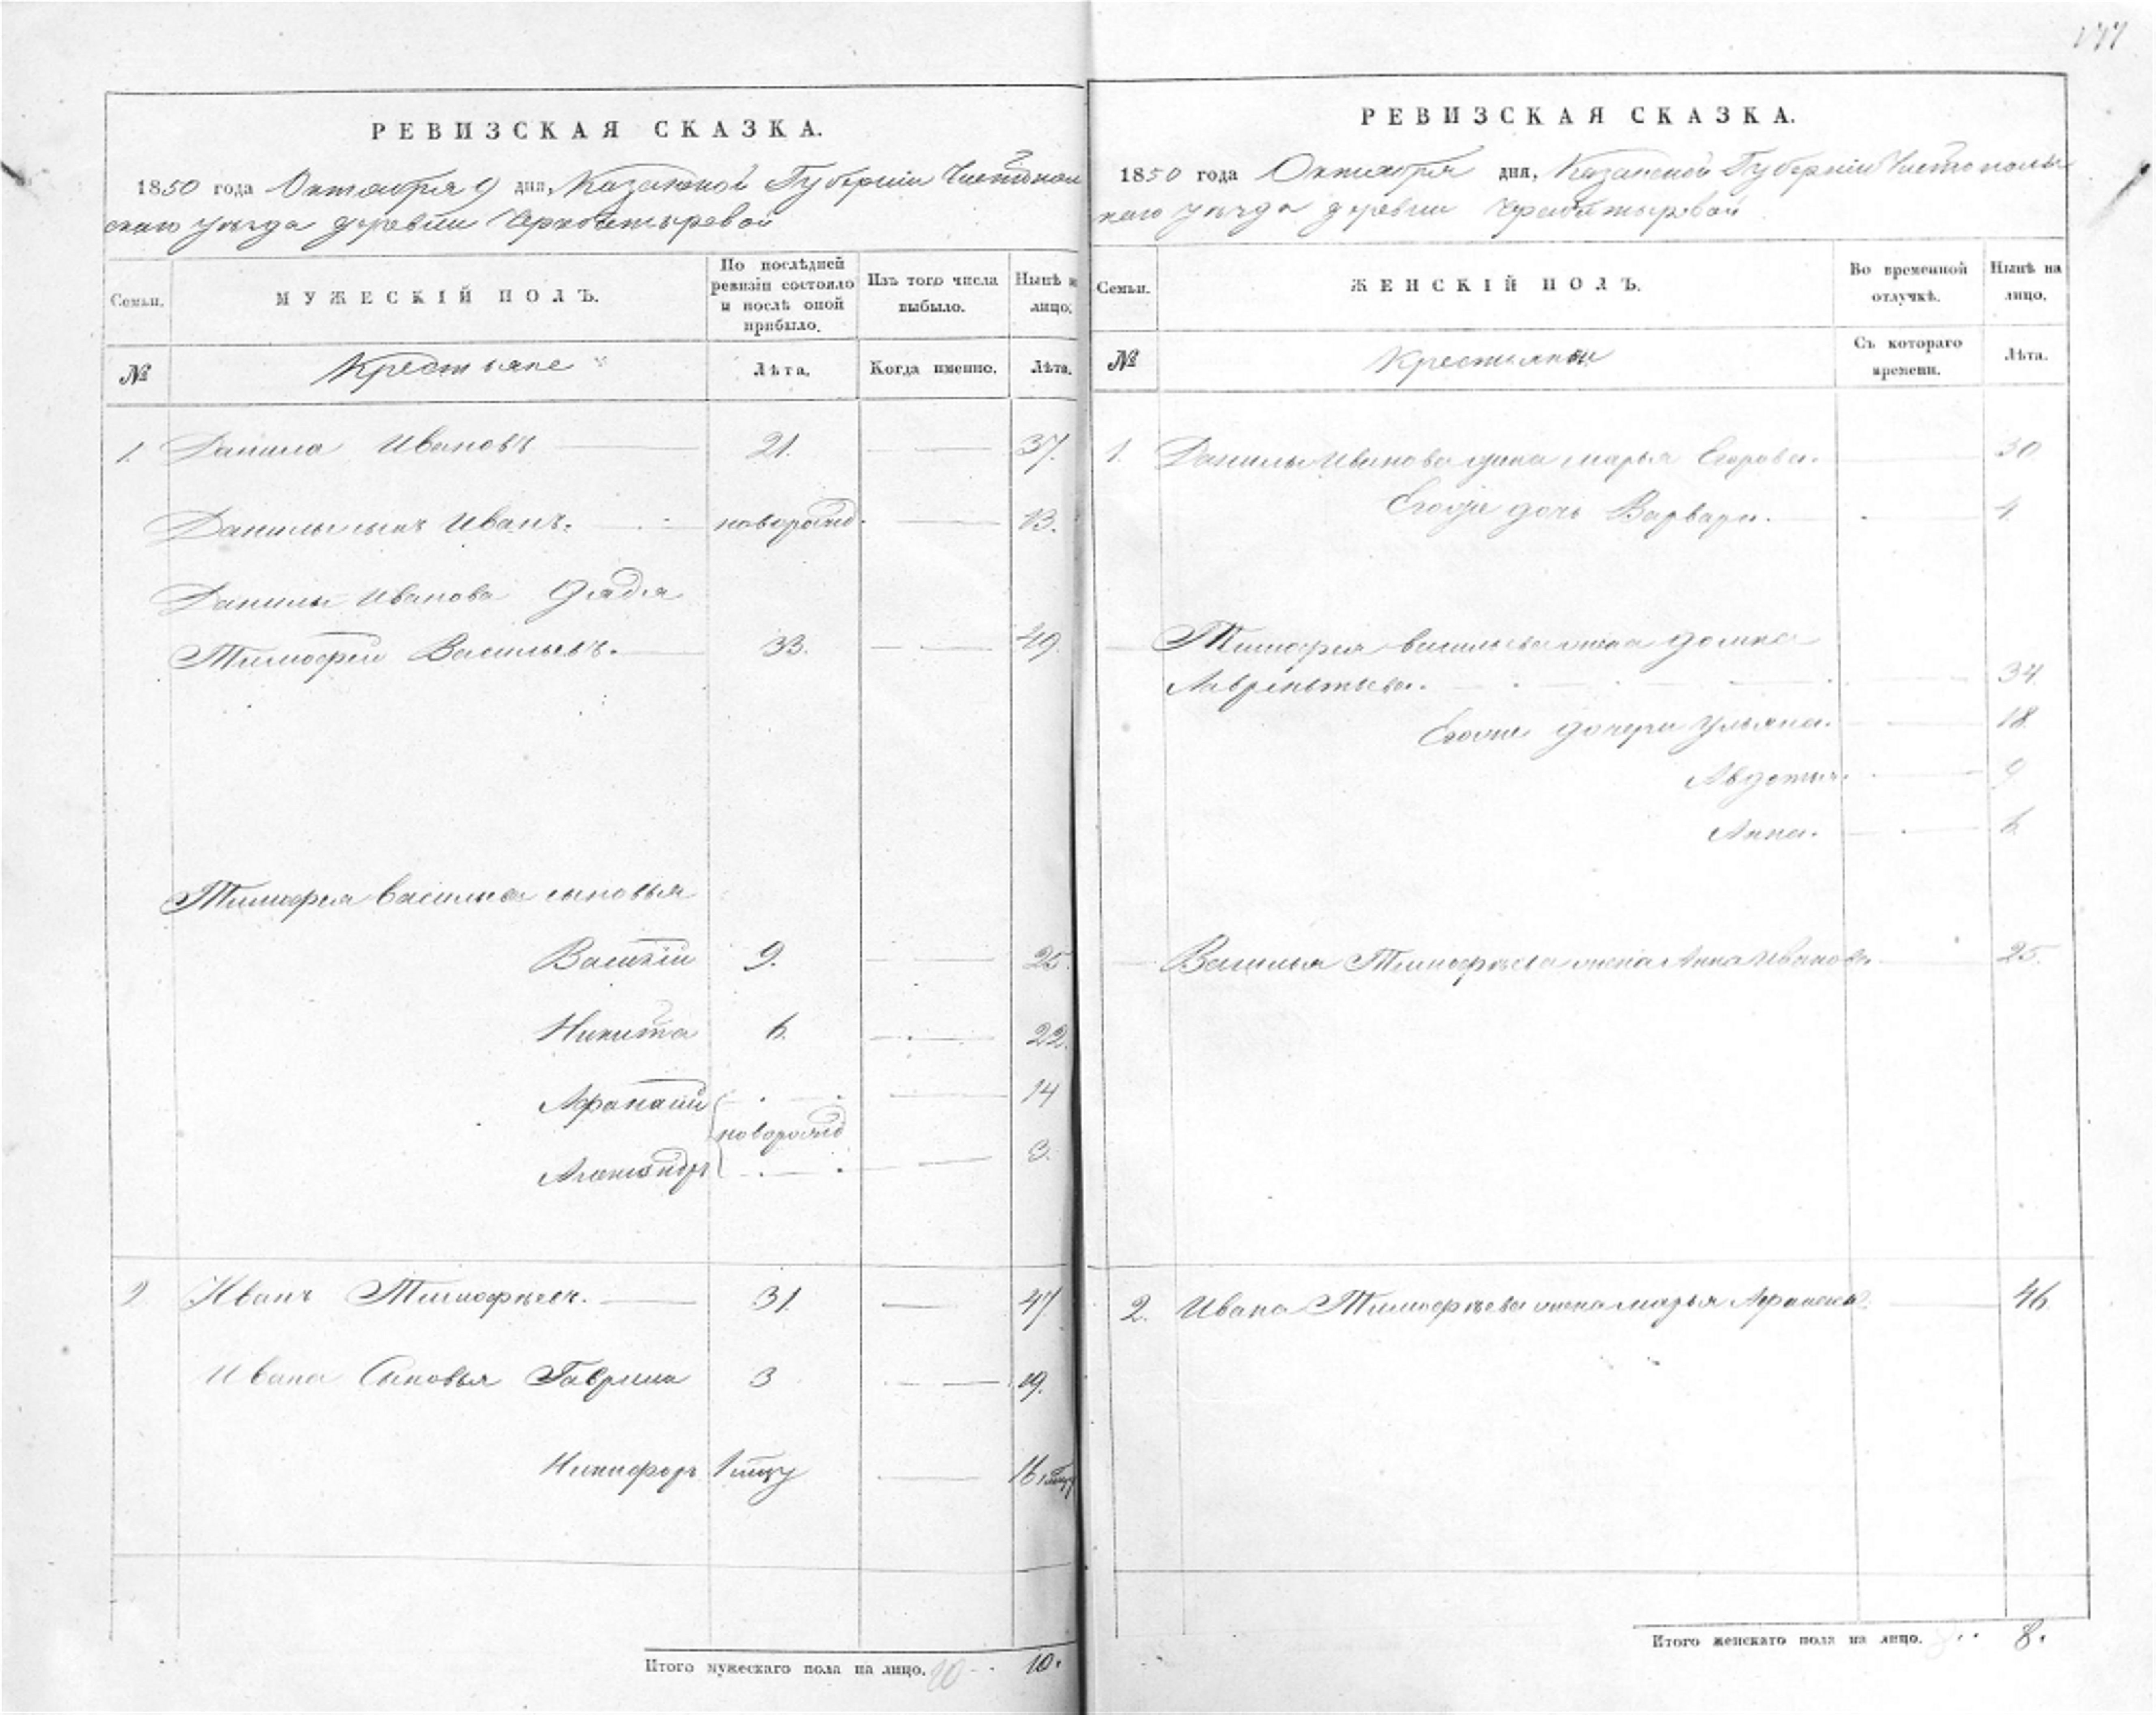 177
РЕВИЗСКАЯ СКАЗКА.
1850 года Октября 9 дня, Казанской Губернии Чистополь
скаго уѣзда деревни
Семьи.
МУЖЕСКІЙ ПОЛЪ.
По послѣдней ревизіи состояло и послѣ оной прибыло.
Изъ того числа выбыло.
Нынѣ на лицо.
№
Крестьяне
Лѣта.
Когда именно.
Лѣта.
1. Данила Ивановъ 21. 37.
Данилы сынъ Иванъ. новорожд. 13.
Данилы Иванова дядя
Тимофей Васильевъ. 33. 49.
Тимофея Васильева сыновья
Василій 9. 25.
Никита 6. 22.
Афанасій 14
новорожд
Александръ 3.
2 Иванъ Тимофѣевъ. 31. 47.
Ивана Сыновья Гаврила 3 19.
Никифоръ 1 мцу 16 1 мцу
Итого мужескаго пола на лицо. 10 10.
РЕВИЗСКАЯ СКАЗКА.
1850 года Октября дня, Казанской Губерніи Чистополь
скаго уѣзда деревни
Семьи.
ЖЕНСКІЙ ПОЛЪ.
Во временной отлучкѣ.
Нынѣ на лицо.
№
Крестьянки
Съ котораго времени.
Лѣта.
1. Данилы Иванова жена Марья Егорова. 30
Егоже дочь Варвара. 4.
Тимофея Васильева жена Домна
Лаврентьева. 34.
Егоже дочери Ульяна. 18.
Авдотья. 9
Анна. 6.
Василья Тимофѣева жена Анна Иванова 25.
2. Ивана Тимофѣева жена Марья Афанасьева. 46.
Итого женскаго пола на лицо. 8.